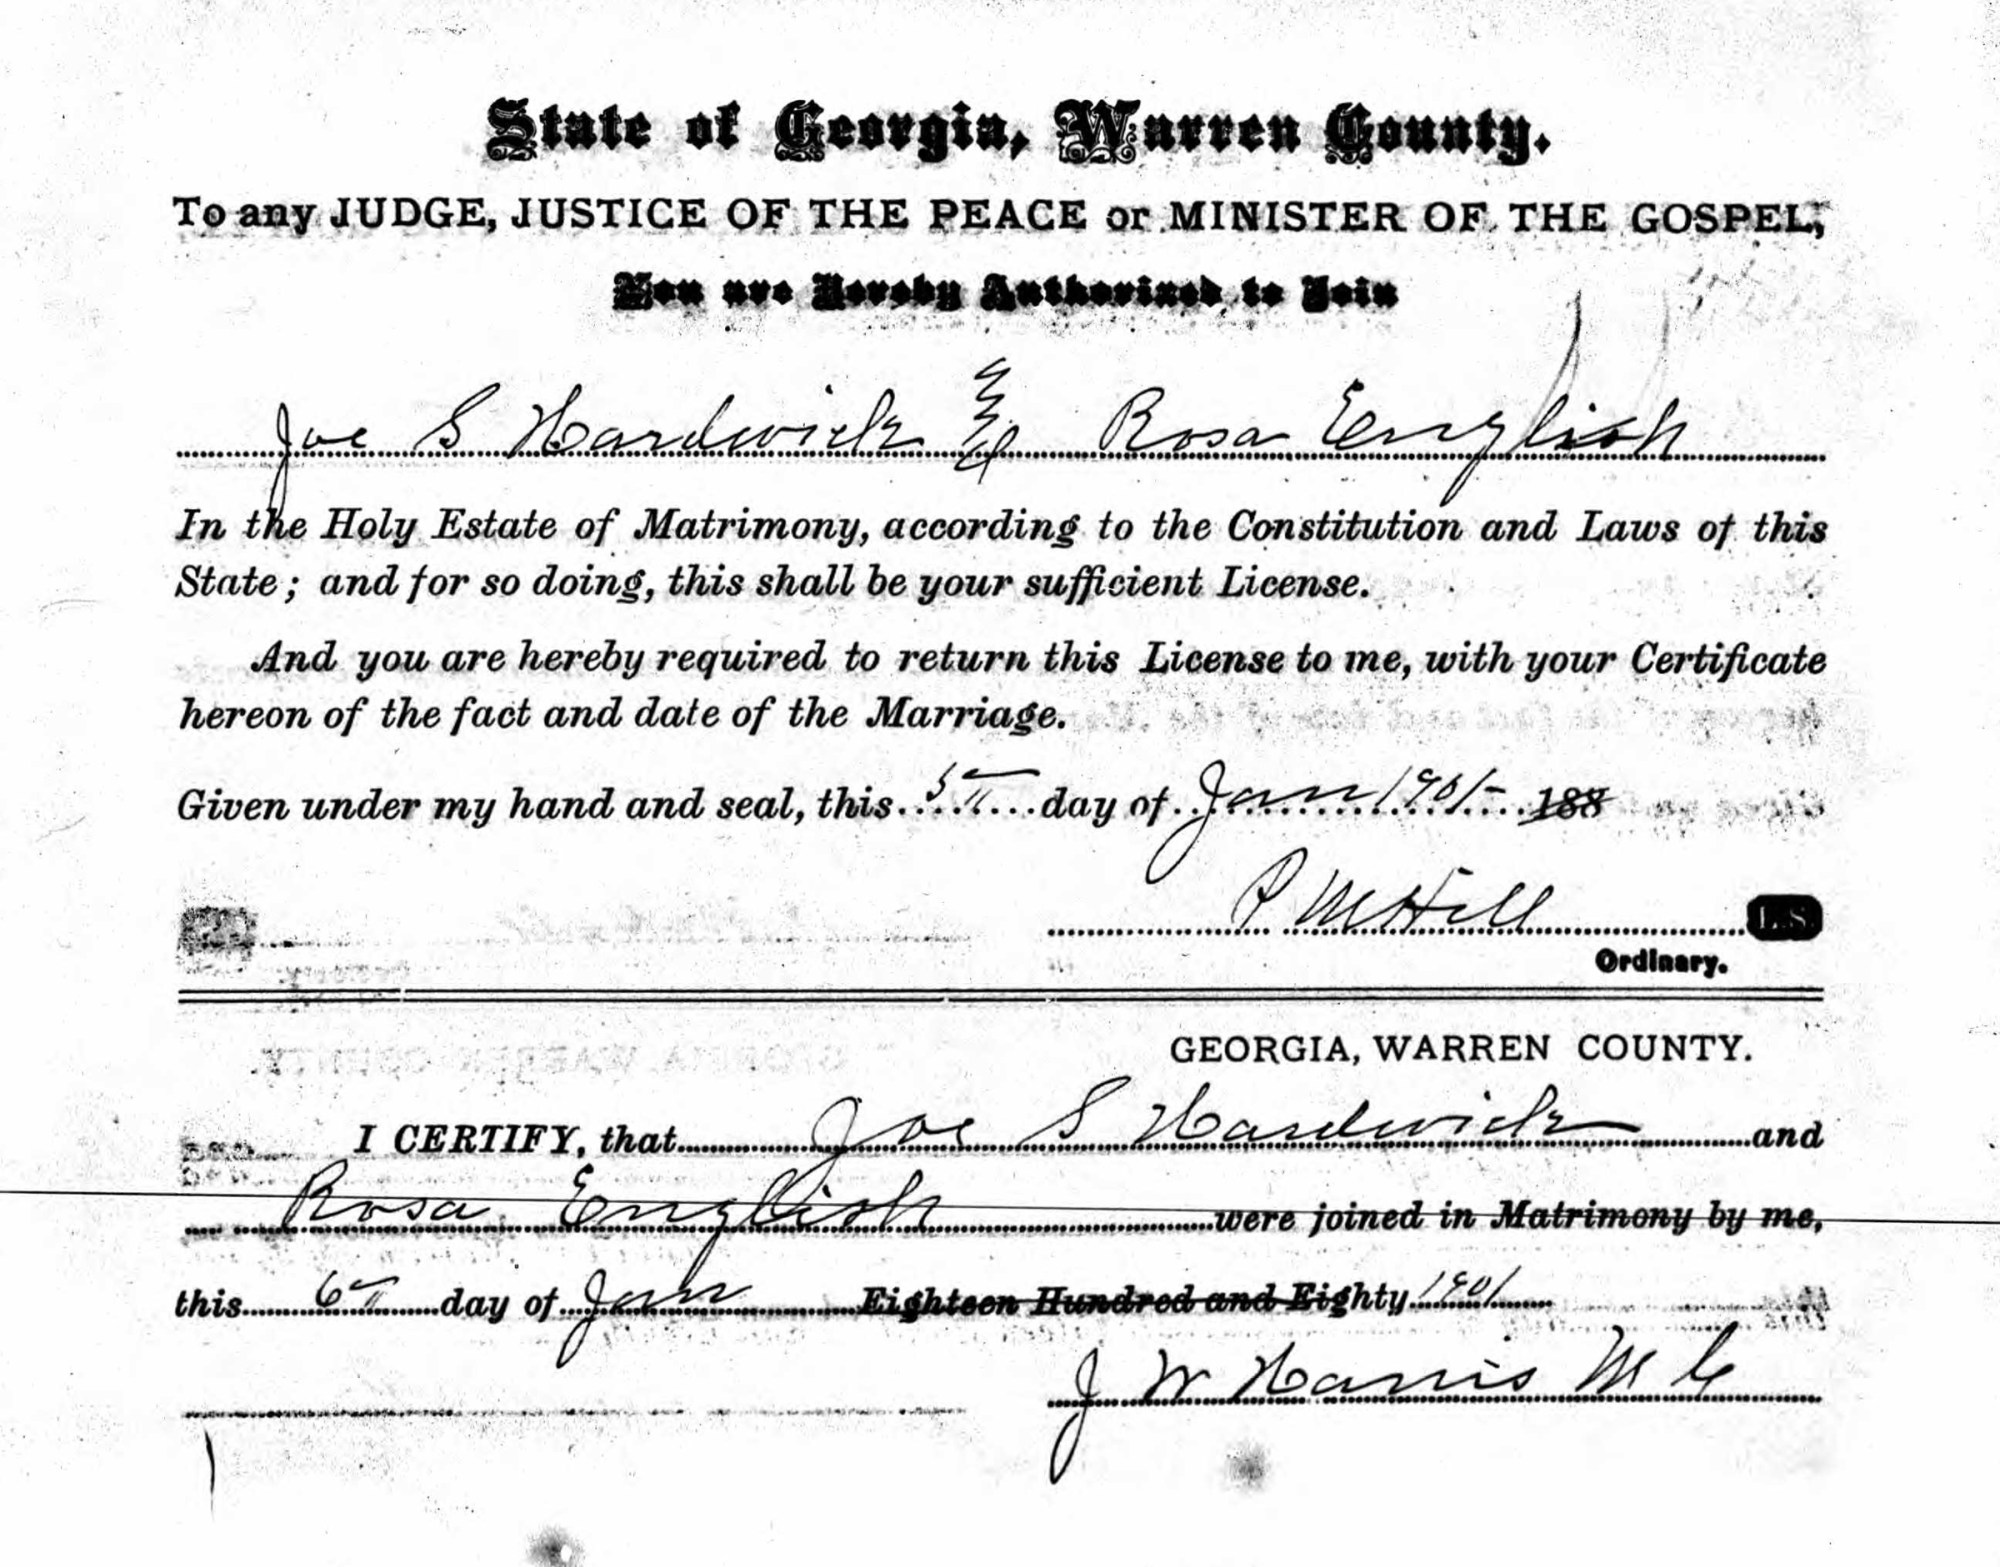 State of Georgia, Warren County.
To any JUDGE, JUSTICE OF THE PEACE or MINISTER OF THE GOSPEL,
You are Hereby Authorized to Join
Joe S Hardwick & Rosa English
In the Holy Estate of Matrimony, according to the Constitution and Laws of this
State; and for so doing, this shall be your sufficient License.
And you are hereby required to return this License to me, with your Certificate
hereon of the fact and date of the Marriage.
Given under my hand and seal, this 5th day of Jan 1901 188
P M Hill L.S.
Ordinary.
GEORGIA, WARREN COUNTY.
I CERTIFY, that Joe S Hardwick and
Rosa English were joined in Matrimony by me,
this 6th day of Jan Eighteen Hundred and Eighty 1901
J W Harris M G